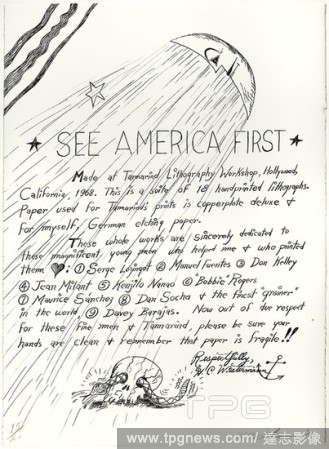 ★ SEE AMERICA FIRST ★
Made at Tamarind Lithography Workshop, Hollywood,
California, 1968. This is a suite of 18 handprinted lithographs.
Paper used for Tamarind's prints is copperplate deluxe +
for myself, German etching paper.
These whole works are sincerely dedicated to
those magnificent young men who helped me + who printed
them ♥: ① Serge Lozingot ② Manuel Fuentes ③ Don Kelley
④ Jean Milant ⑤ Kenjilo Nanao ⑥ Bobbie "Rogers
⑦ Maurice Sanchez ⑧ Dan Socha + the finest "grainer"
in the world, ⑨ Davey Barajas. Now out of due respect
for these fine men + Tamarind, please be sure your
hands are clean + remember that paper is fragile!!
Respectfully,
H C Westermann
TPG
www.tpgnews.com/達志影像